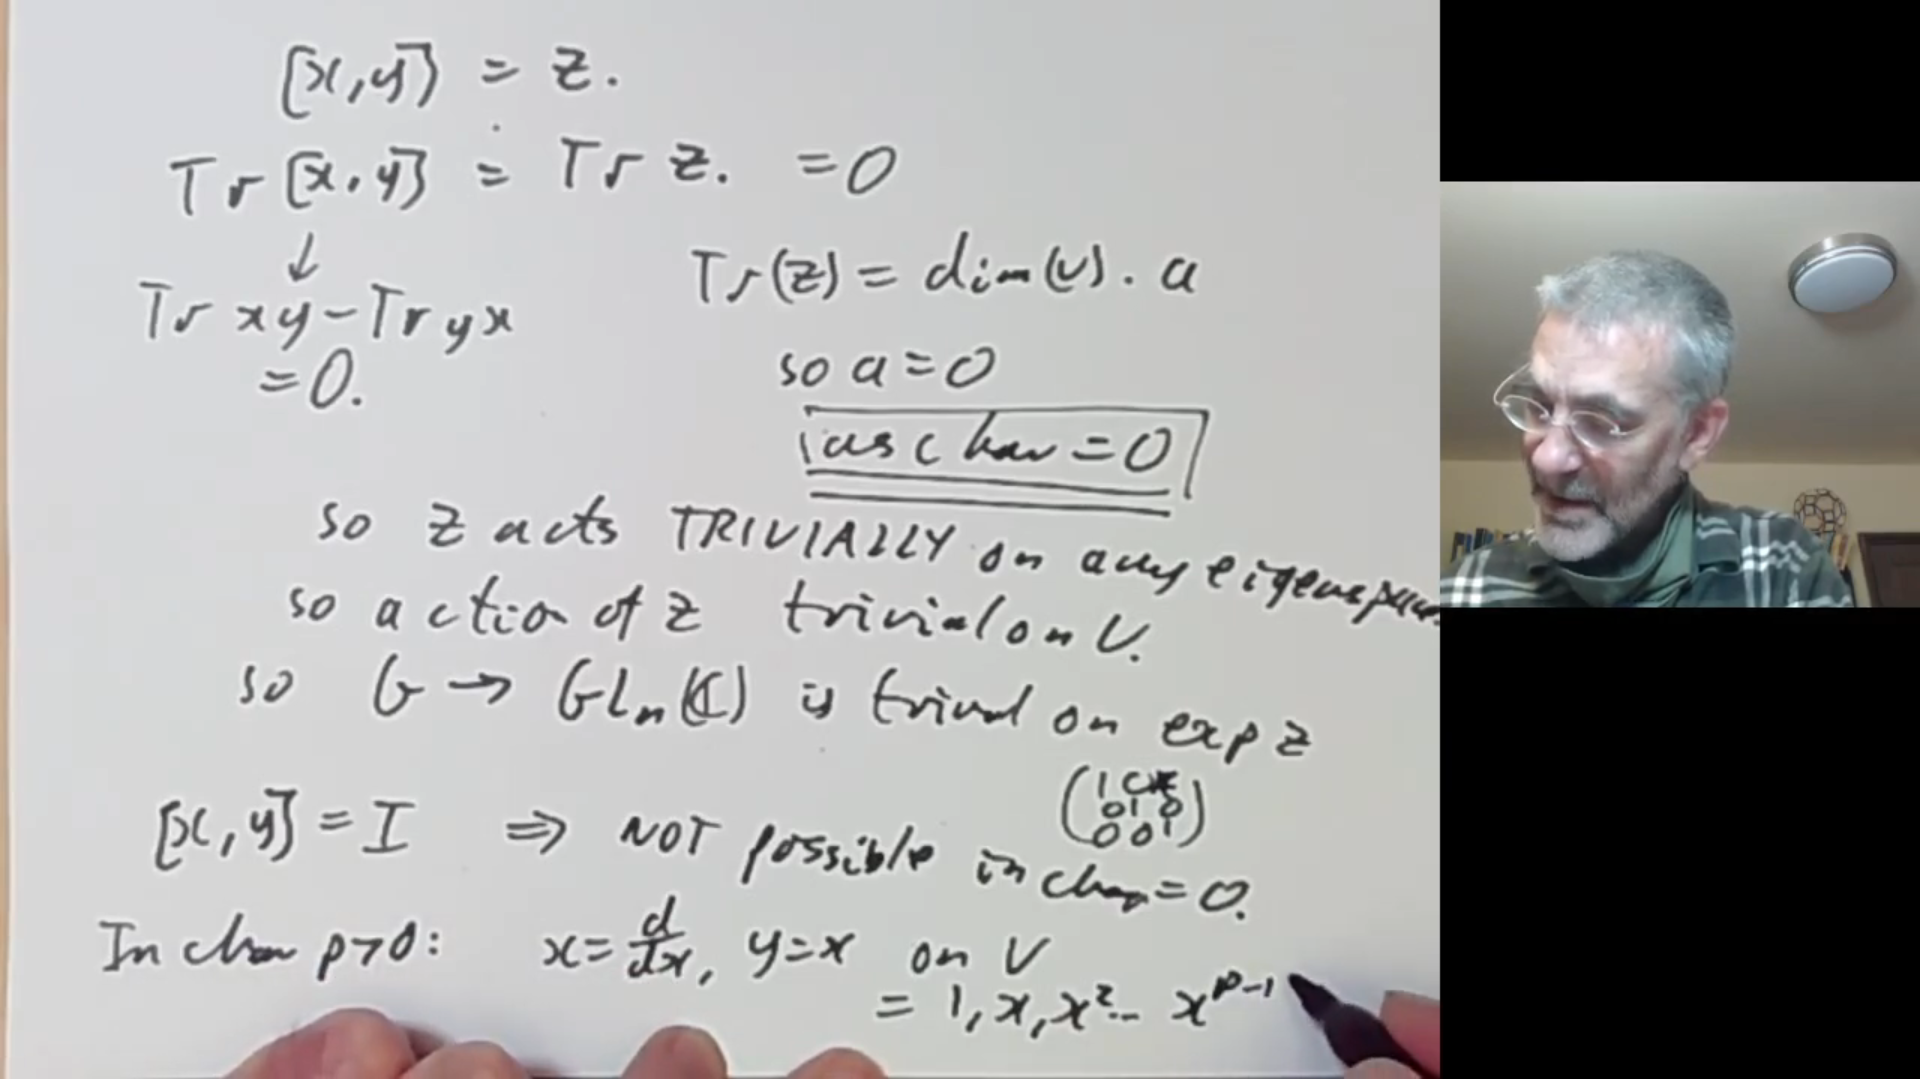 [x,y] = z.
Tr[x,y] = Tr z. = 0
↓
Tr xy - Tr yx
= 0.
Tr(z) = dim(V). a
so a = 0
(as char = 0
so z acts TRIVIALLY on any eigenspace.
so action of z trivial on V.
so G → GLn(ℂ) is trivial on exp z
(1 0 *
0 1 0
0 0 1)
[x,y] = I ⇒ NOT possible in char = 0.
In char p>0: x = d/dx, y = x on V
= 1, x, x² .. x^{p-1}